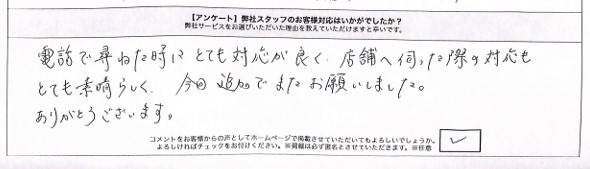 【アンケート】弊社スタッフのお客様対応はいかがでしたか?
弊社サービスをお選びいただいた理由を教えていただけますと幸いです。
電話で尋ねた時にとても対応が良く、店舗へ伺った際の対応も
とても素晴らしく、今回追加でまたお願いしました。
ありがとうございます。
コメントをお客様からの声としてホームページで掲載させていただいてもよろしいでしょうか。
よろしければチェックをお付けください。※掲載は必ず匿名とさせていただきます。※任意